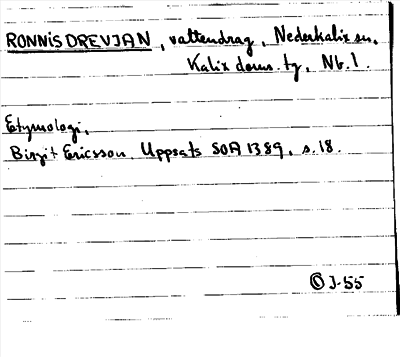 RONNISDREVJAN, vattendrag, Nederkalix sn.
Kalix doms. tg, Nb. l.
Etymologi,
Birgit Ericsson, Uppsats SOA 1389, s. 18.
© J-55